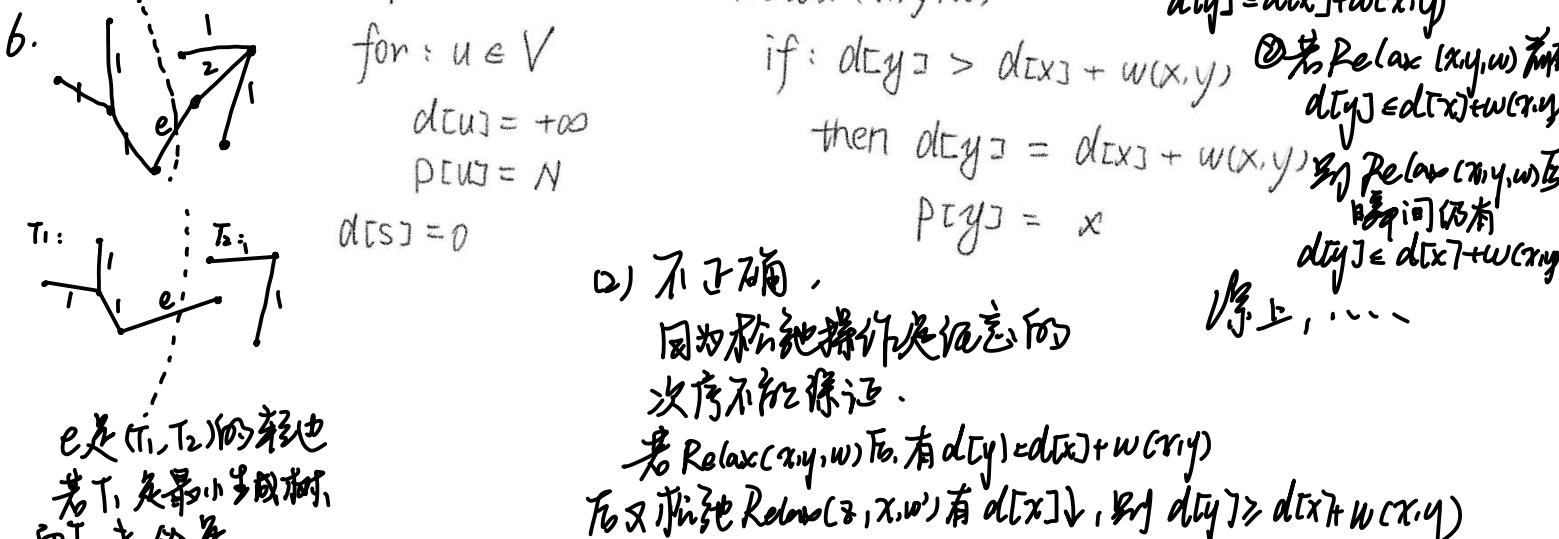 6.
1
1
1
1
2
1
e
T₁:
T₂:
1
1
1
1
1
e
e是(T₁,T₂)的轻边
若T₁是最小生成树
for : u ∈ V
d[u] = +∞
p[u] = N
d[s] = 0
if : d[y] > d[x] + w(x,y)
then d[y] = d[x] + w(x,y)
p[y] = x
(2) 不正确，
因为松弛操作是任意的
次序不能保证．
若 Relax(x,y,w)后，有d[y]=d[x]+w(x,y)
后又松弛Relax(z,x,w')有d[x]↓，则 d[y]≥d[x]+w(x,y)
d[y]=d[x]+w(x,y)
②若Relax(x,y,w)前
d[y]≤d[x]+w(x,y
则Relax(x,y,w)后
瞬间仍有
d[y]≤d[x]+w(x,y
综上，....